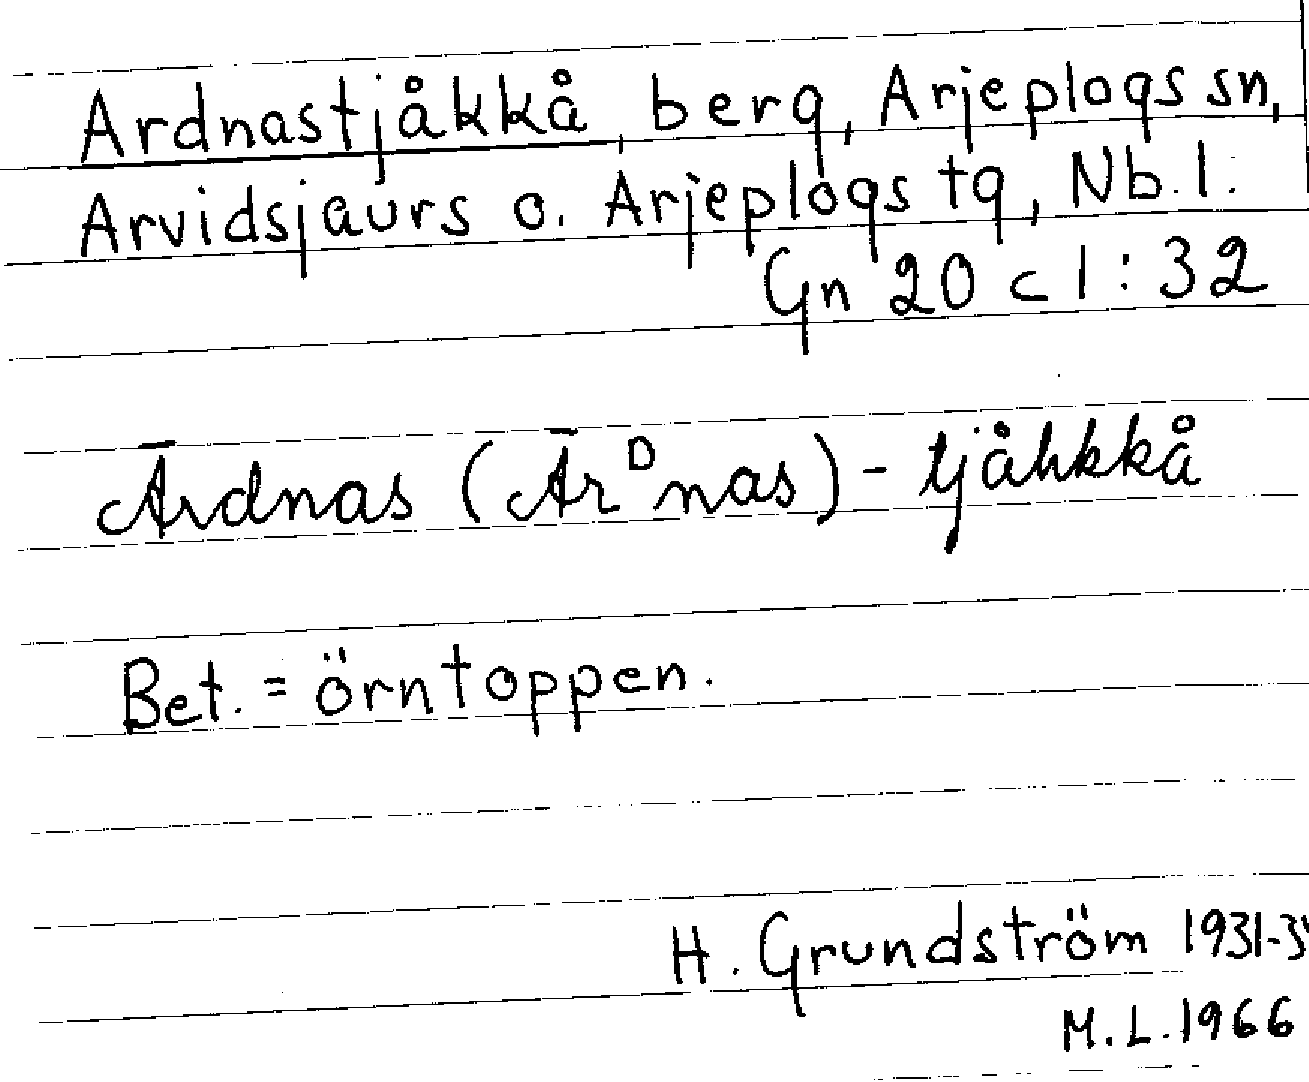 Ardnastjåkkå, berg, Arjeplogs sn,
Arvidsjaurs o. Arjeplogs tg, Nb. l.
Gn 20 c 1:32
Ārdnas (Ārᴰnas)-tjåhkkå
Bet. = örntoppen.
H. Grundström
M.L. 1966